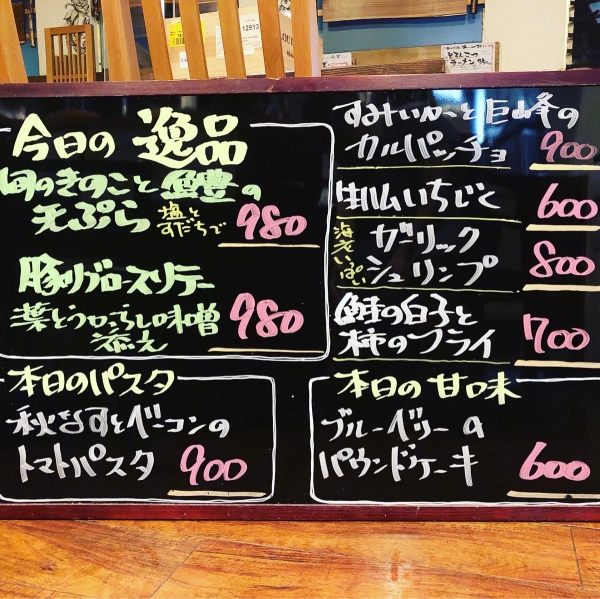 今日の 逸品
旬のきのこと 鱧の
天ぷら 塩と
すだちで 980
豚リブロースソテー
葉とうがらし味噌 980
添え
すみいかと巨峰の
カルパッチョ 900
生ハムいちじく 600
海老いっぱい
ガーリック
シュリンプ 800
鮭の白子と
柿のフライ 700
本日のパスタ
秋なすとベーコンの
トマトパスタ 900
本日の 甘味
ブルーベリーの
パウンドケーキ 600
12913
ラーメン